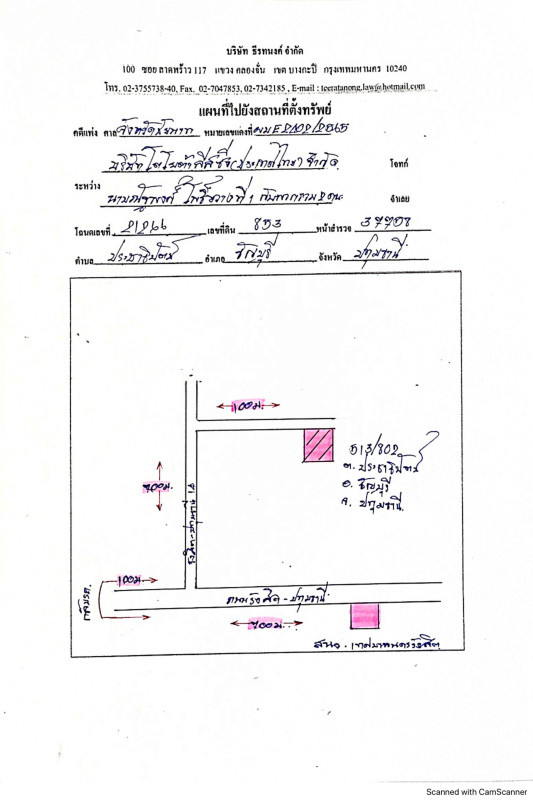 บริษัท ธีรทนงค์ จำกัด
100 ซอย ลาดพร้าว 117 แขวง คลองจั่น เขต บางกะปิ กรุงเทพมหานคร 10240
โทร. 02-3755738-40, Fax. 02-7047853, 02-7342185 , E-mail : teeratanong.law@hotmail.com
แผนที่ไปยังสถานที่ตั้งทรัพย์
คดีแพ่ง ศาล จังหวัดชัยนาท หมายเลขแดงที่ ผบE2202/2565
บริษัท โตโยต้า ลีสซิ่ง (ประเทศไทย) จำกัด โจทก์
ระหว่าง
ที่ 1 กับพวกรวม 2 คน จำเลย
โฉนดเลขที่ 21266 เลขที่ดิน 853 หน้าสำรวจ 37708
ตำบล ประชาธิปัตย์ อำเภอ ธัญบุรี จังหวัด ปทุมธานี
100ม.
513/802
ต. ประชาธิปัตย์
อ. ธัญบุรี
จ. ปทุมธานี
400ม.
100ม.
กลับรถ
ถนนรังสิต - ปทุมธานี
700ม.
สนง. เทศบาลนครรังสิต
Scanned with CamScanner